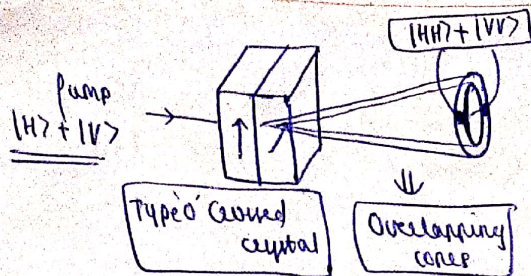 |HH> + |VV>
Pump
|H> + |V>
Type'0' Crossed
crystal
Overlapping
cones